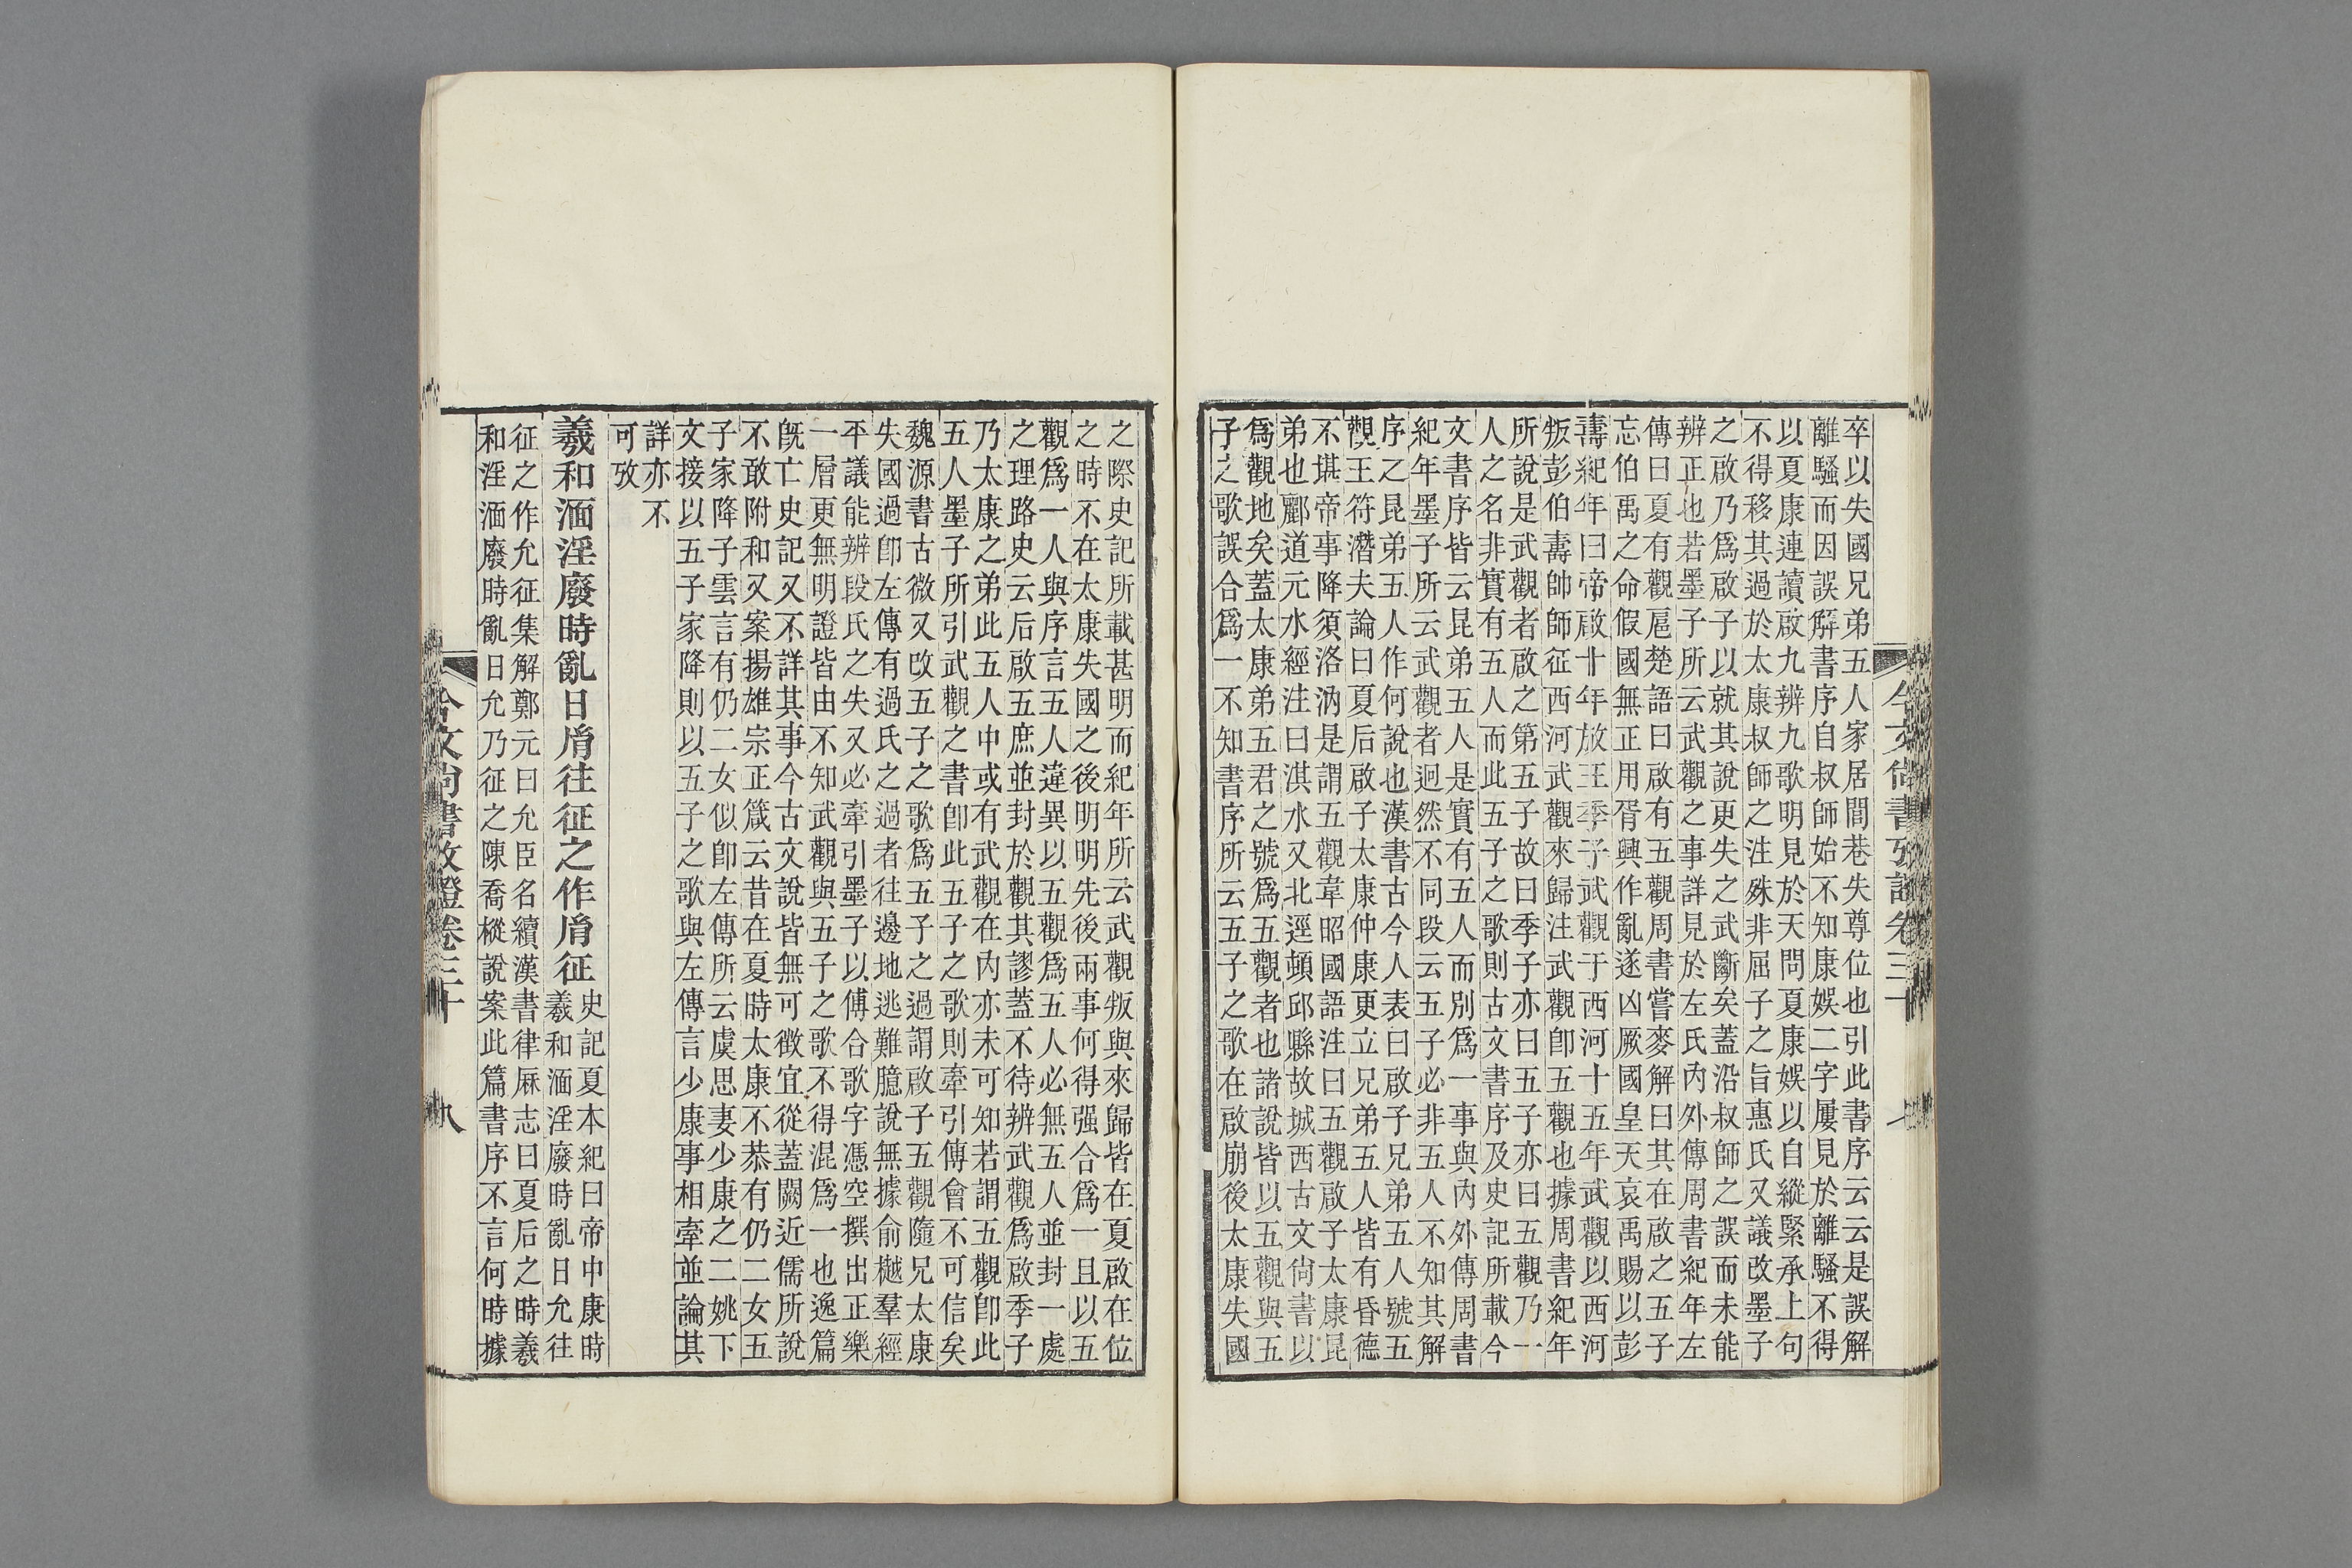 卒以失國兄弟五人家居閭巷失尊位也引此書序云云是誤解
離騷而因誤解書序自叔師始不知康娛二字屢見於離騷不得
以夏康連讀啟九辨九歌明見於天問夏康娛以自縱緊承上句
不得移其過於太康叔師之注殊非屈子之旨惠氏又議改墨子
之啟乃爲啟子以就其說更失之武斷矣蓋沿叔師之誤而未能
辨正也若墨子所云武觀之事詳見於左氏內外傳周書紀年左
傳曰夏有觀扈楚語曰啟有五觀周書嘗麥解曰其在啟之五子
忘伯禹之命假國無正用胥興作亂遂凶厥國皇天哀禹賜以彭
壽紀年曰帝啟十年放王季子武觀于西河十五年武觀以西河
叛彭伯壽帥師征西河武觀來歸注武觀卽五觀也據周書紀年
所說是武觀者啟之第五子故曰季子亦曰五子亦曰五觀乃一
人之名非實有五人而此五子之歌則古文書序及史記所載今
文書序皆云昆弟五人是實有五人而別爲一事與內外傳周書
紀年墨子所云武觀者迥然不同段云五子必非五人不知其解
序之昆弟五人作何說也漢書古今人表曰啟子兄弟五人號五
觀王符潛夫論曰夏后啟子太康仲康更立兄弟五人皆有昏德
不堪帝事降須洛汭是謂五觀韋昭國語注曰五觀啟子太康昆
弟也酈道元水經注曰淇水又北逕頓邱縣故城西古文尙書以
爲觀地矣蓋太康弟五君之號爲五觀者也諸說皆以五觀與五
子之歌誤合爲一不知書序所云五子之歌在啟崩後太康失國
今文尙書攷證卷三十
七
之際史記所載甚明而紀年所云武觀叛與來歸皆在夏啟在位
之時不在太康失國之後明明先後兩事何得强合爲一且以五
觀爲一人與序言五人違異以五觀爲五人必無五人並封一處
之理路史云后啟五庶並封於觀其謬蓋不待辨武觀爲啟季子
乃太康之弟此五人中或有武觀在內亦未可知若謂五觀卽此
五人墨子所引武觀之書卽此五子之歌則牽引傳會不可信矣
魏源書古微又改五子之歌爲五子之過謂啟子五觀隨兄太康
失國過卽左傳有過氏之過者往邊地逃難臆說無據俞樾羣經
平議能辨段氏之失又必牽引墨子以傅合歌字憑空撰出正樂
一層更無明證皆由不知武觀與五子之歌不得混爲一也逸篇
旣亡史記又不詳其事今古文說皆無可徵宜從蓋闕近儒所說
不敢附和又案揚雄宗正箴云昔在夏時太康不恭有仍二女五
子家降子雲言有仍二女似卽左傳所云虞思妻少康之二姚下
文接以五子家降則以五子之歌與左傳言少康事相牽並論其
詳亦不
可攷
羲和湎淫廢時亂日胤往征之作胤征
史記夏本紀曰帝中康時
羲和湎淫廢時亂日允往
征之作允征集解鄭元曰允臣名續漢書律厤志曰夏后之時羲
和淫湎廢時亂日允乃征之陳喬樅說案此篇書序不言何時據
今文尙書攷證卷三十
八